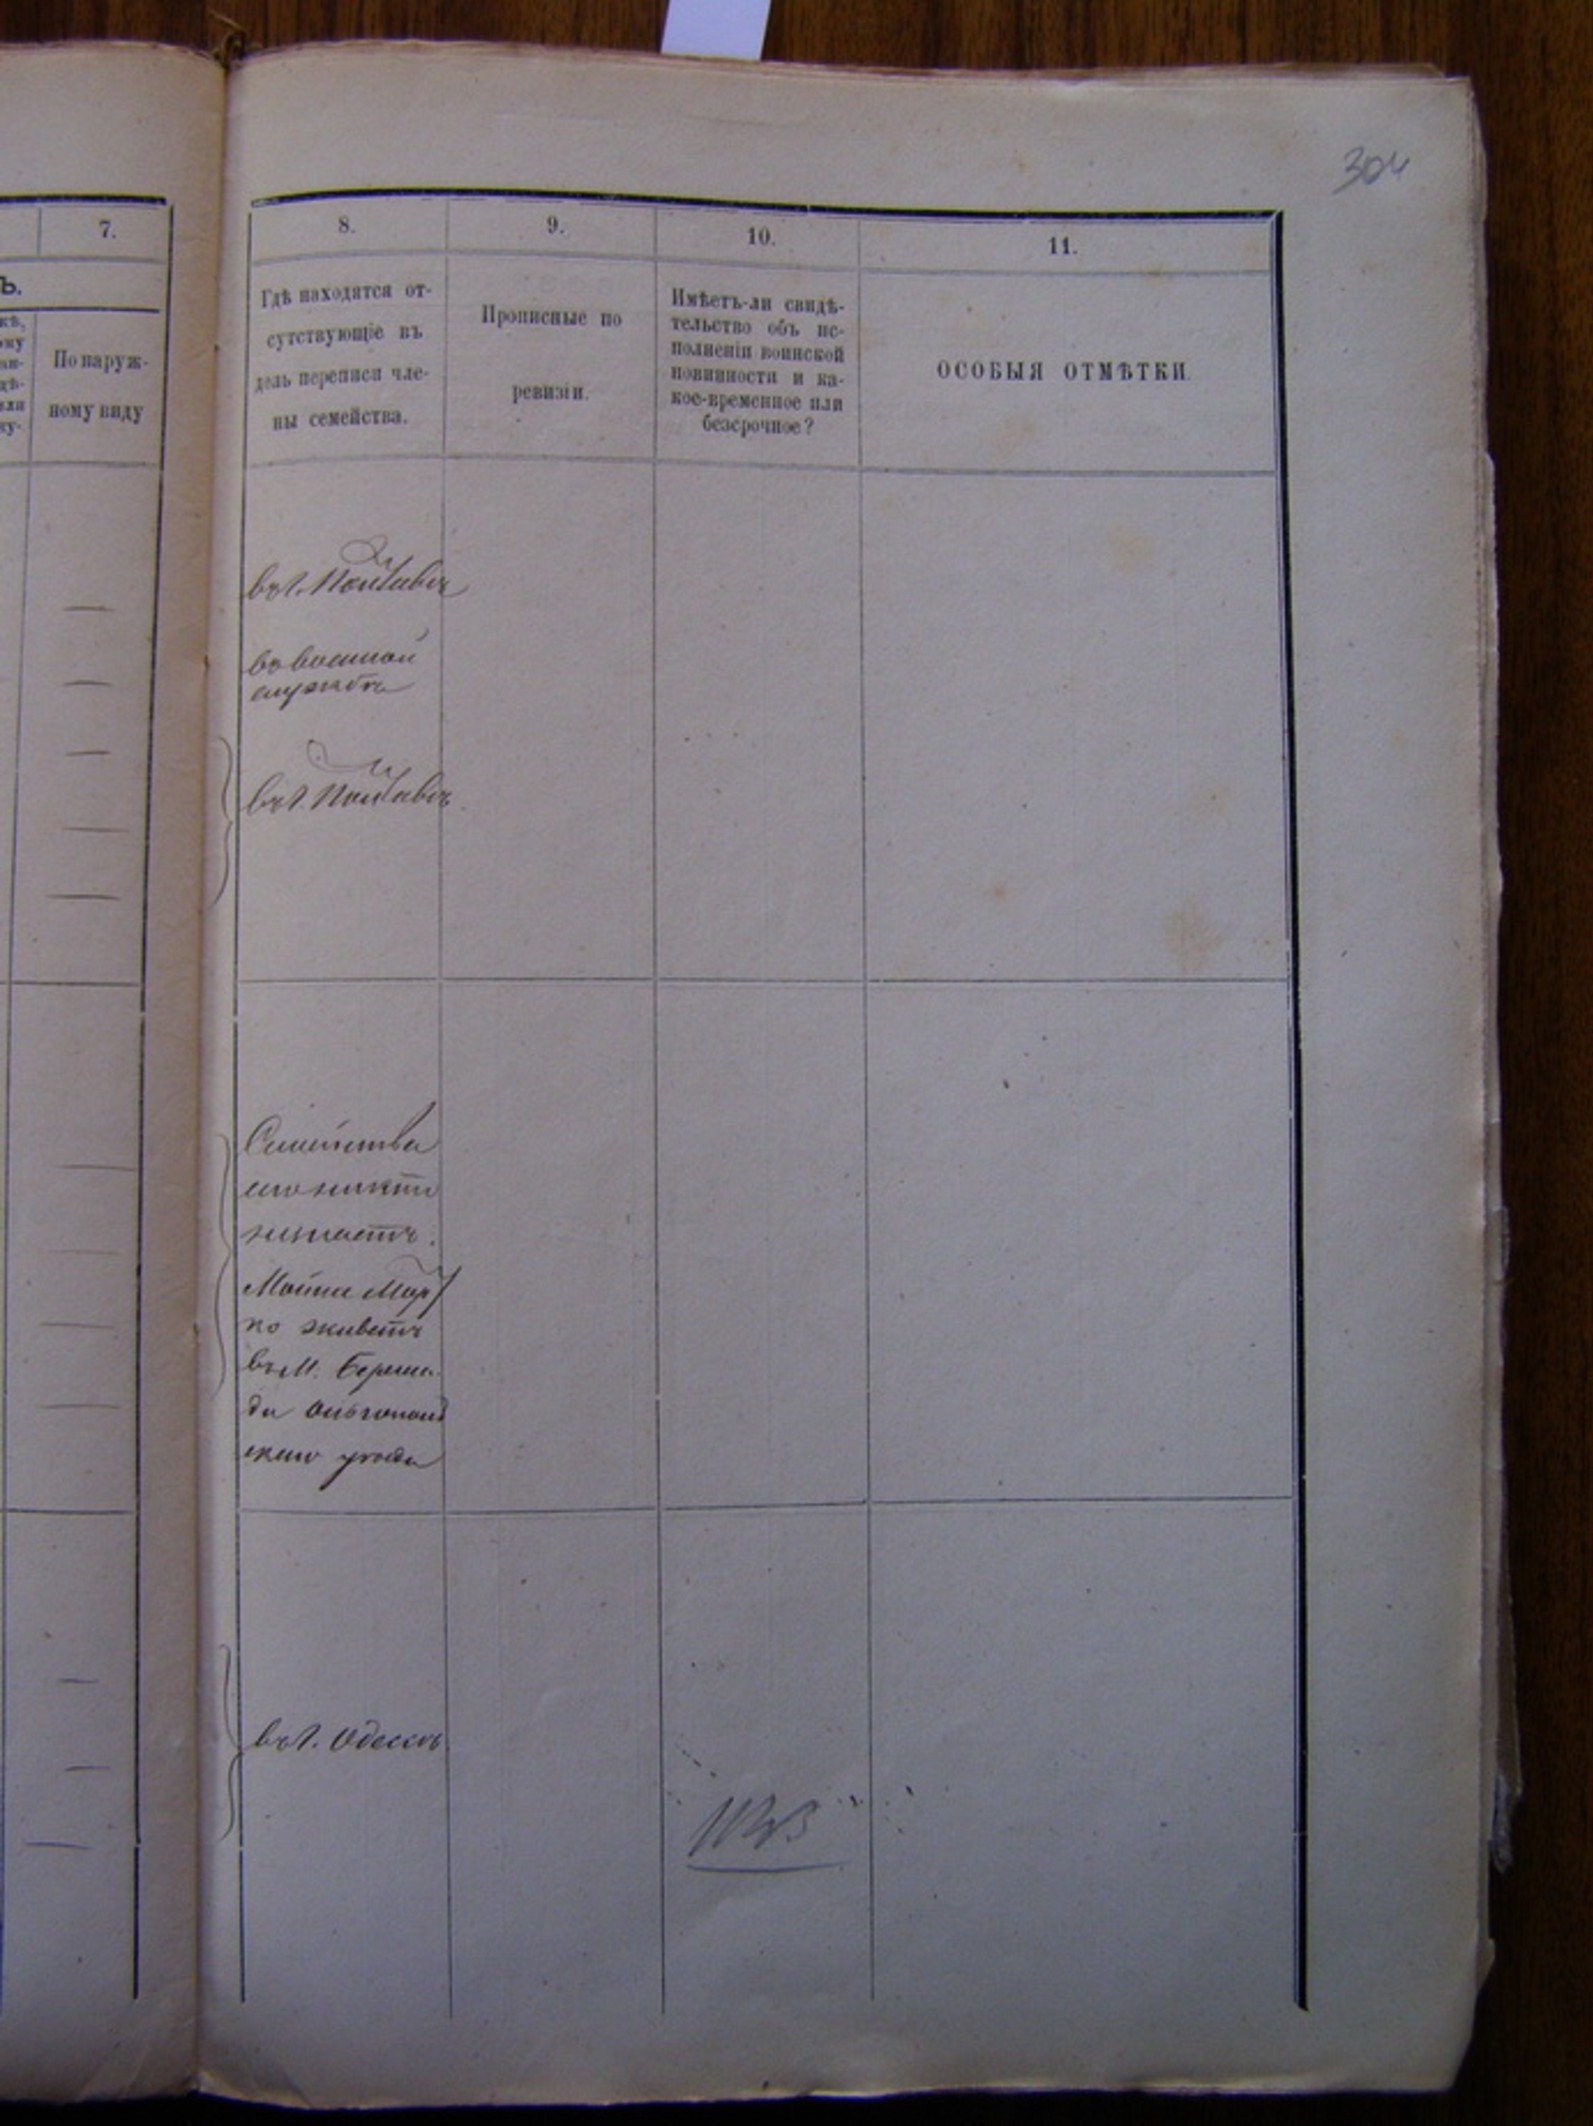 304
7.
8.
9.
10.
11.
Ъ.
По наруж-
ному виду
Гдѣ находятся от-
сутствующіе въ
день переписи чле-
ны семейства.
Прописные по
ревизіи.
Имѣетъ-ли свидѣ-
тельство объ ис-
полненіи воинской
повинности и ка-
кое-временное или
безсрочное?
ОСОБЫЯ ОТМѢТКИ.
въ г. Полтавѣ
въ военной
службѣ
въ г. Полтавѣ
Семейства
его никто
незнаетъ.
живетъ
въ М. Берша-
ди Ольгополь
скаго уѣзда
въ г. Одессѣ